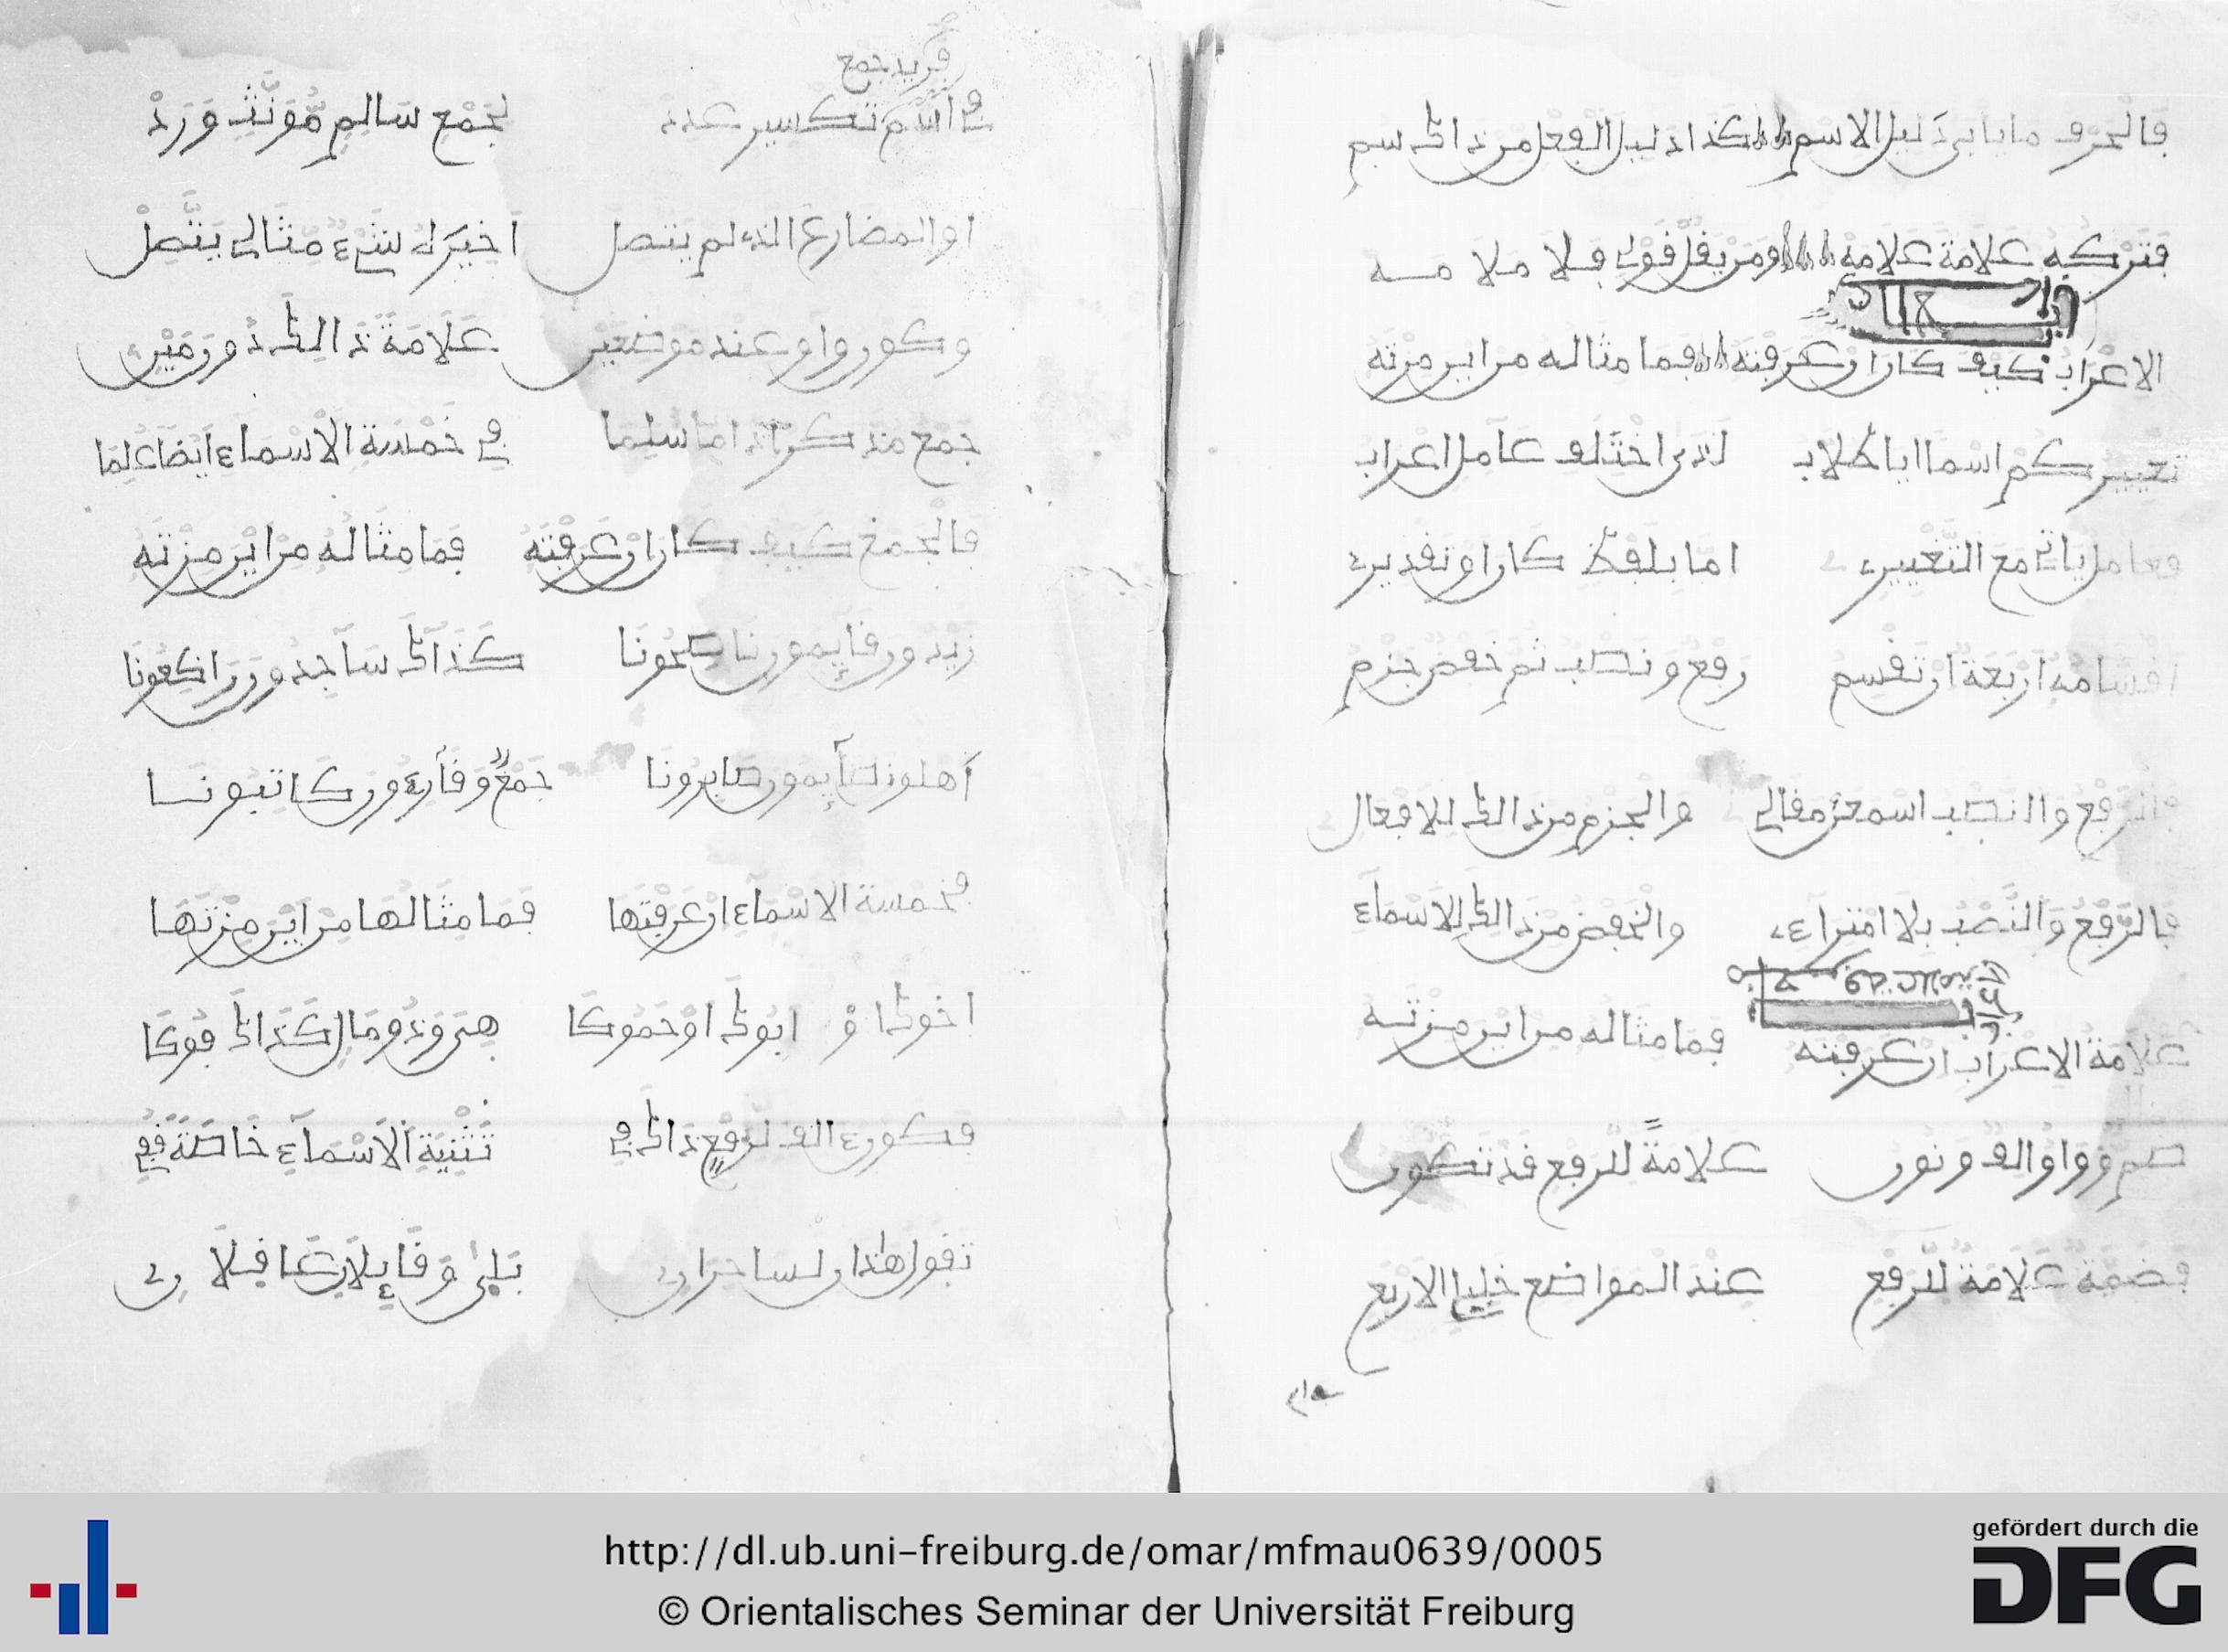 فالحرف مايابى دليل الاسم كذا دليل الفعل من ذاك سم
فتركه علامة علامه ومن يقل قولى فلا ملامه
باب الاعراب
الاعراب كيف كان ان عرفته فما مثاله من اين مزته
تغييركم اسما ايا طلاب لدى اختلف عامل اعراب
وعامل ياتى مع التغيير اما بلفظ كان او تقدير
اقسامه اربعة ان تقسم رفع ونصب ثم خفض جزم
والرفع والنصب اسمعن مقالى والجزم من ذالك للافعال
فالرفع والنصب بلا امتراء والخفض من ذالك للاسماء
باب معرفة
علامة الاعراب ان عرفته فما مثاله من اين مزته
ضم وواو الف ونون علامة للرفع قد تكون
فضمة علامة للرفع عند المواضع خليل الاربع
فى اسم تكسير عدد لجمع سالم مؤنث ورد
او المضارع الذى لم يتصل اخيره لشىء مثالى يتصل
وكون واو عند موضعين علامة ذالك دون مين
جمع مذكر اذا ما سلما فى خمسة الاسماء ايضا علما
فالجمع كيف كان ان عرفته فما مثاله من اين مزته
زيدون قايمون صلحونا كذاك ساجدون راكعونا
اهلون صايمون صابرونا جمع وقارءون كاتبونا
فخمسة الاسماء ان عرفتها فما مثالها من اين مزتها
اخوك او ابوك او حموكا هى وذو مال كذاك فوكا
فكون الف لرفع ذاك فى تثنية الاسماء خاصة قفى
تقول هذان لساحران بلى وقايلان غافلان
http://dl.ub.uni-freiburg.de/omar/mfmau0639/0005
© Orientalisches Seminar der Universität Freiburg
gefördert durch die
DFG